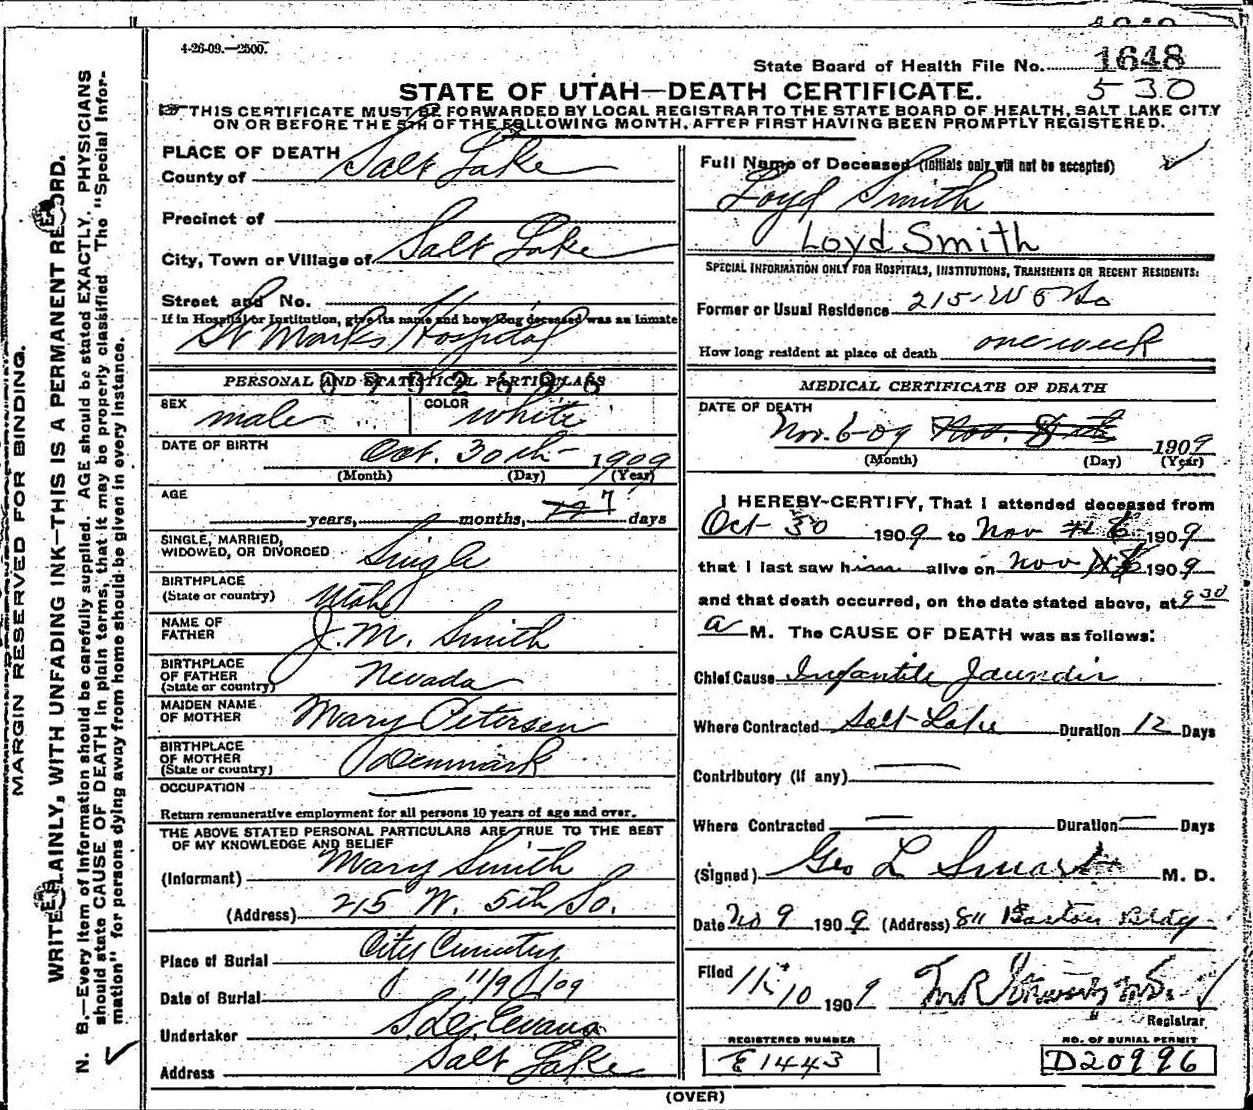 4-26-09.—2500.
State Board of Health File No. 1648
530
STATE OF UTAH—DEATH CERTIFICATE.
THIS CERTIFICATE MUST BE FORWARDED BY LOCAL REGISTRAR TO THE STATE BOARD OF HEALTH, SALT LAKE CITY
ON OR BEFORE THE 5TH OF THE FOLLOWING MONTH, AFTER FIRST HAVING BEEN PROMPTLY REGISTERED.
MARGIN RESERVED FOR BINDING.
WRITE PLAINLY, WITH UNFADING INK—THIS IS A PERMANENT RECORD.
N. B.—Every item of information should be carefully supplied. AGE should be stated EXACTLY. PHYSICIANS
should state CAUSE OF DEATH in plain terms, that it may be properly classified The "Special Infor-
mation" for persons dying away from home should be given in every instance.
PLACE OF DEATH
County of Salt Lake
Precinct of
City, Town or Village of Salt Lake
Street and No.
If in Hospital or Institution, give its name and how long deceased was an inmate
St Marks Hospital
PERSONAL AND STATISTICAL PARTICULARS
SEX male COLOR white
DATE OF BIRTH Oct. 30th 1909
(Month) (Day) (Year)
AGE
years, months, 7 days
SINGLE, MARRIED,
WIDOWED, OR DIVORCED Single
BIRTHPLACE
(State or country) Utah
NAME OF
FATHER J. M. Smith
BIRTHPLACE
OF FATHER
(State or country) Nevada
MAIDEN NAME
OF MOTHER Mary Petersen
BIRTHPLACE
OF MOTHER
(State or country) Denmark
OCCUPATION
Return remunerative employment for all persons 10 years of age and over.
THE ABOVE STATED PERSONAL PARTICULARS ARE TRUE TO THE BEST
OF MY KNOWLEDGE AND BELIEF
(Informant) Mary Smith
(Address) 215 W. 5th So.
Place of Burial City Cemetery
Date of Burial 11/9/09
Undertaker S. D. Evans
Address Salt Lake
Full Name of Deceased (Initials only will not be accepted)
Loyd Smith
Loyd Smith
SPECIAL INFORMATION ONLY FOR HOSPITALS, INSTITUTIONS, TRANSIENTS OR RECENT RESIDENTS:
Former or Usual Residence 215 W 5 So
How long resident at place of death one week
MEDICAL CERTIFICATE OF DEATH
DATE OF DEATH
Nov. 6-09 Nov. 8th 1909
(Month) (Day) (Year)
I HEREBY CERTIFY, That I attended deceased from
Oct 30 1909 to Nov 6 1909
that I last saw him alive on Nov 6 1909
and that death occurred, on the date stated above, at 9 30
a M. The CAUSE OF DEATH was as follows:
Chief Cause Infantile Jaundis
Where Contracted Salt Lake Duration 12 Days
Contributory (if any)
Where Contracted Duration Days
(Signed) Geo L Smart M. D.
Date No 9 1909 (Address) 811 Boston Bldg
Filed 11 10 1909
Registrar
REGISTERED NUMBER
E1443
NO. OF BURIAL PERMIT
D20996
(OVER)